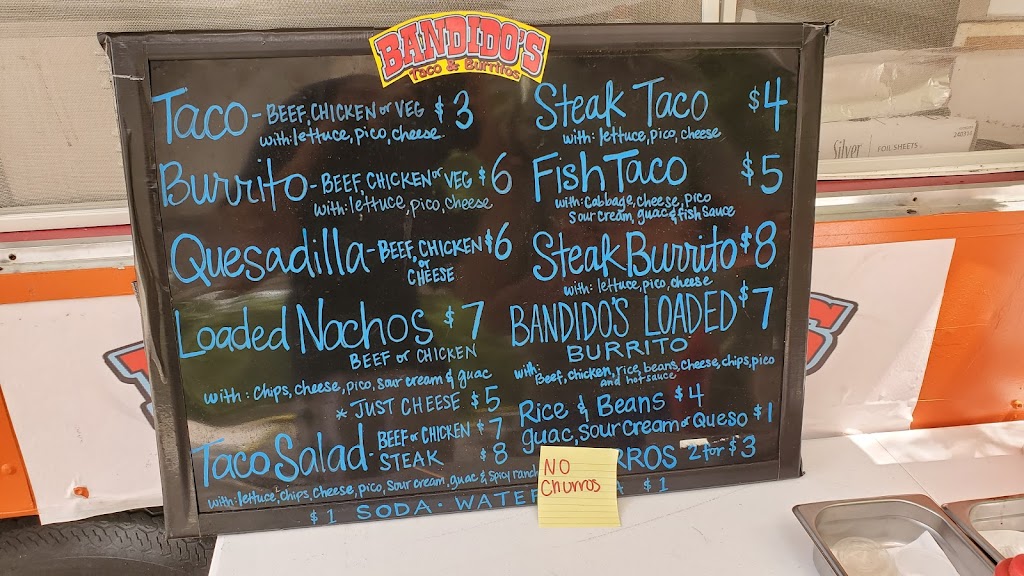 BANDIDO'S
Taco & Burritos
Taco - BEEF, CHICKEN or VEG $3
with: lettuce, pico, cheese
Burrito - BEEF, CHICKEN or VEG $6
with: lettuce, pico, cheese
Quesadilla - BEEF, CHICKEN $6
or CHEESE
Loaded Nachos $7
BEEF or CHICKEN
with: chips, cheese, pico, sour cream & guac
* JUST CHEESE $5
Taco Salad - BEEF or CHICKEN $7
STEAK $8
with: lettuce, chips, cheese, pico, sour cream, guac & spicy ranch
Steak Taco $4
with: lettuce, pico, cheese
Fish Taco $5
with: cabbage, cheese, pico
sour cream, guac & fish sauce
Steak Burrito $8
with: lettuce, pico, cheese
BANDIDO'S LOADED $7
BURRITO
with: Beef, chicken, rice, beans, cheese, chips, pico
and hot sauce
Rice & Beans $4
guac, sour cream or Queso $1
RROS 2 for $3
$1 SODA · WATER $1
NO
Churros
Silver FOIL SHEETS